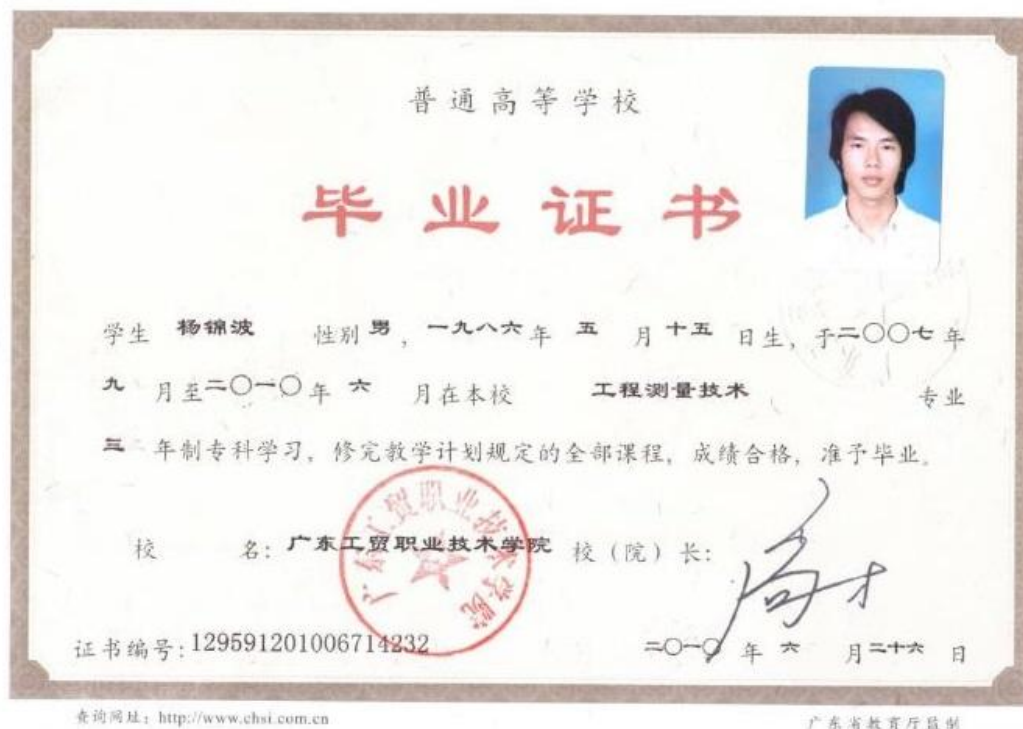 普通高等学校
毕业证书
学生 杨锦波 性别 男，一九八六年 五 月 十五 日生，于二〇〇七年
九 月至二〇一〇年 六 月在本校 工程测量技术 专业
三 年制专科学习，修完教学计划规定的全部课程，成绩合格，准予毕业。
广东工贸职业技术学院
校 名：广东工贸职业技术学院 校（院）长：
证书编号：129591201006714232 二〇一〇年 六 月二十六 日
查询网址：http://www.chsi.com.cn 广东省教育厅监制